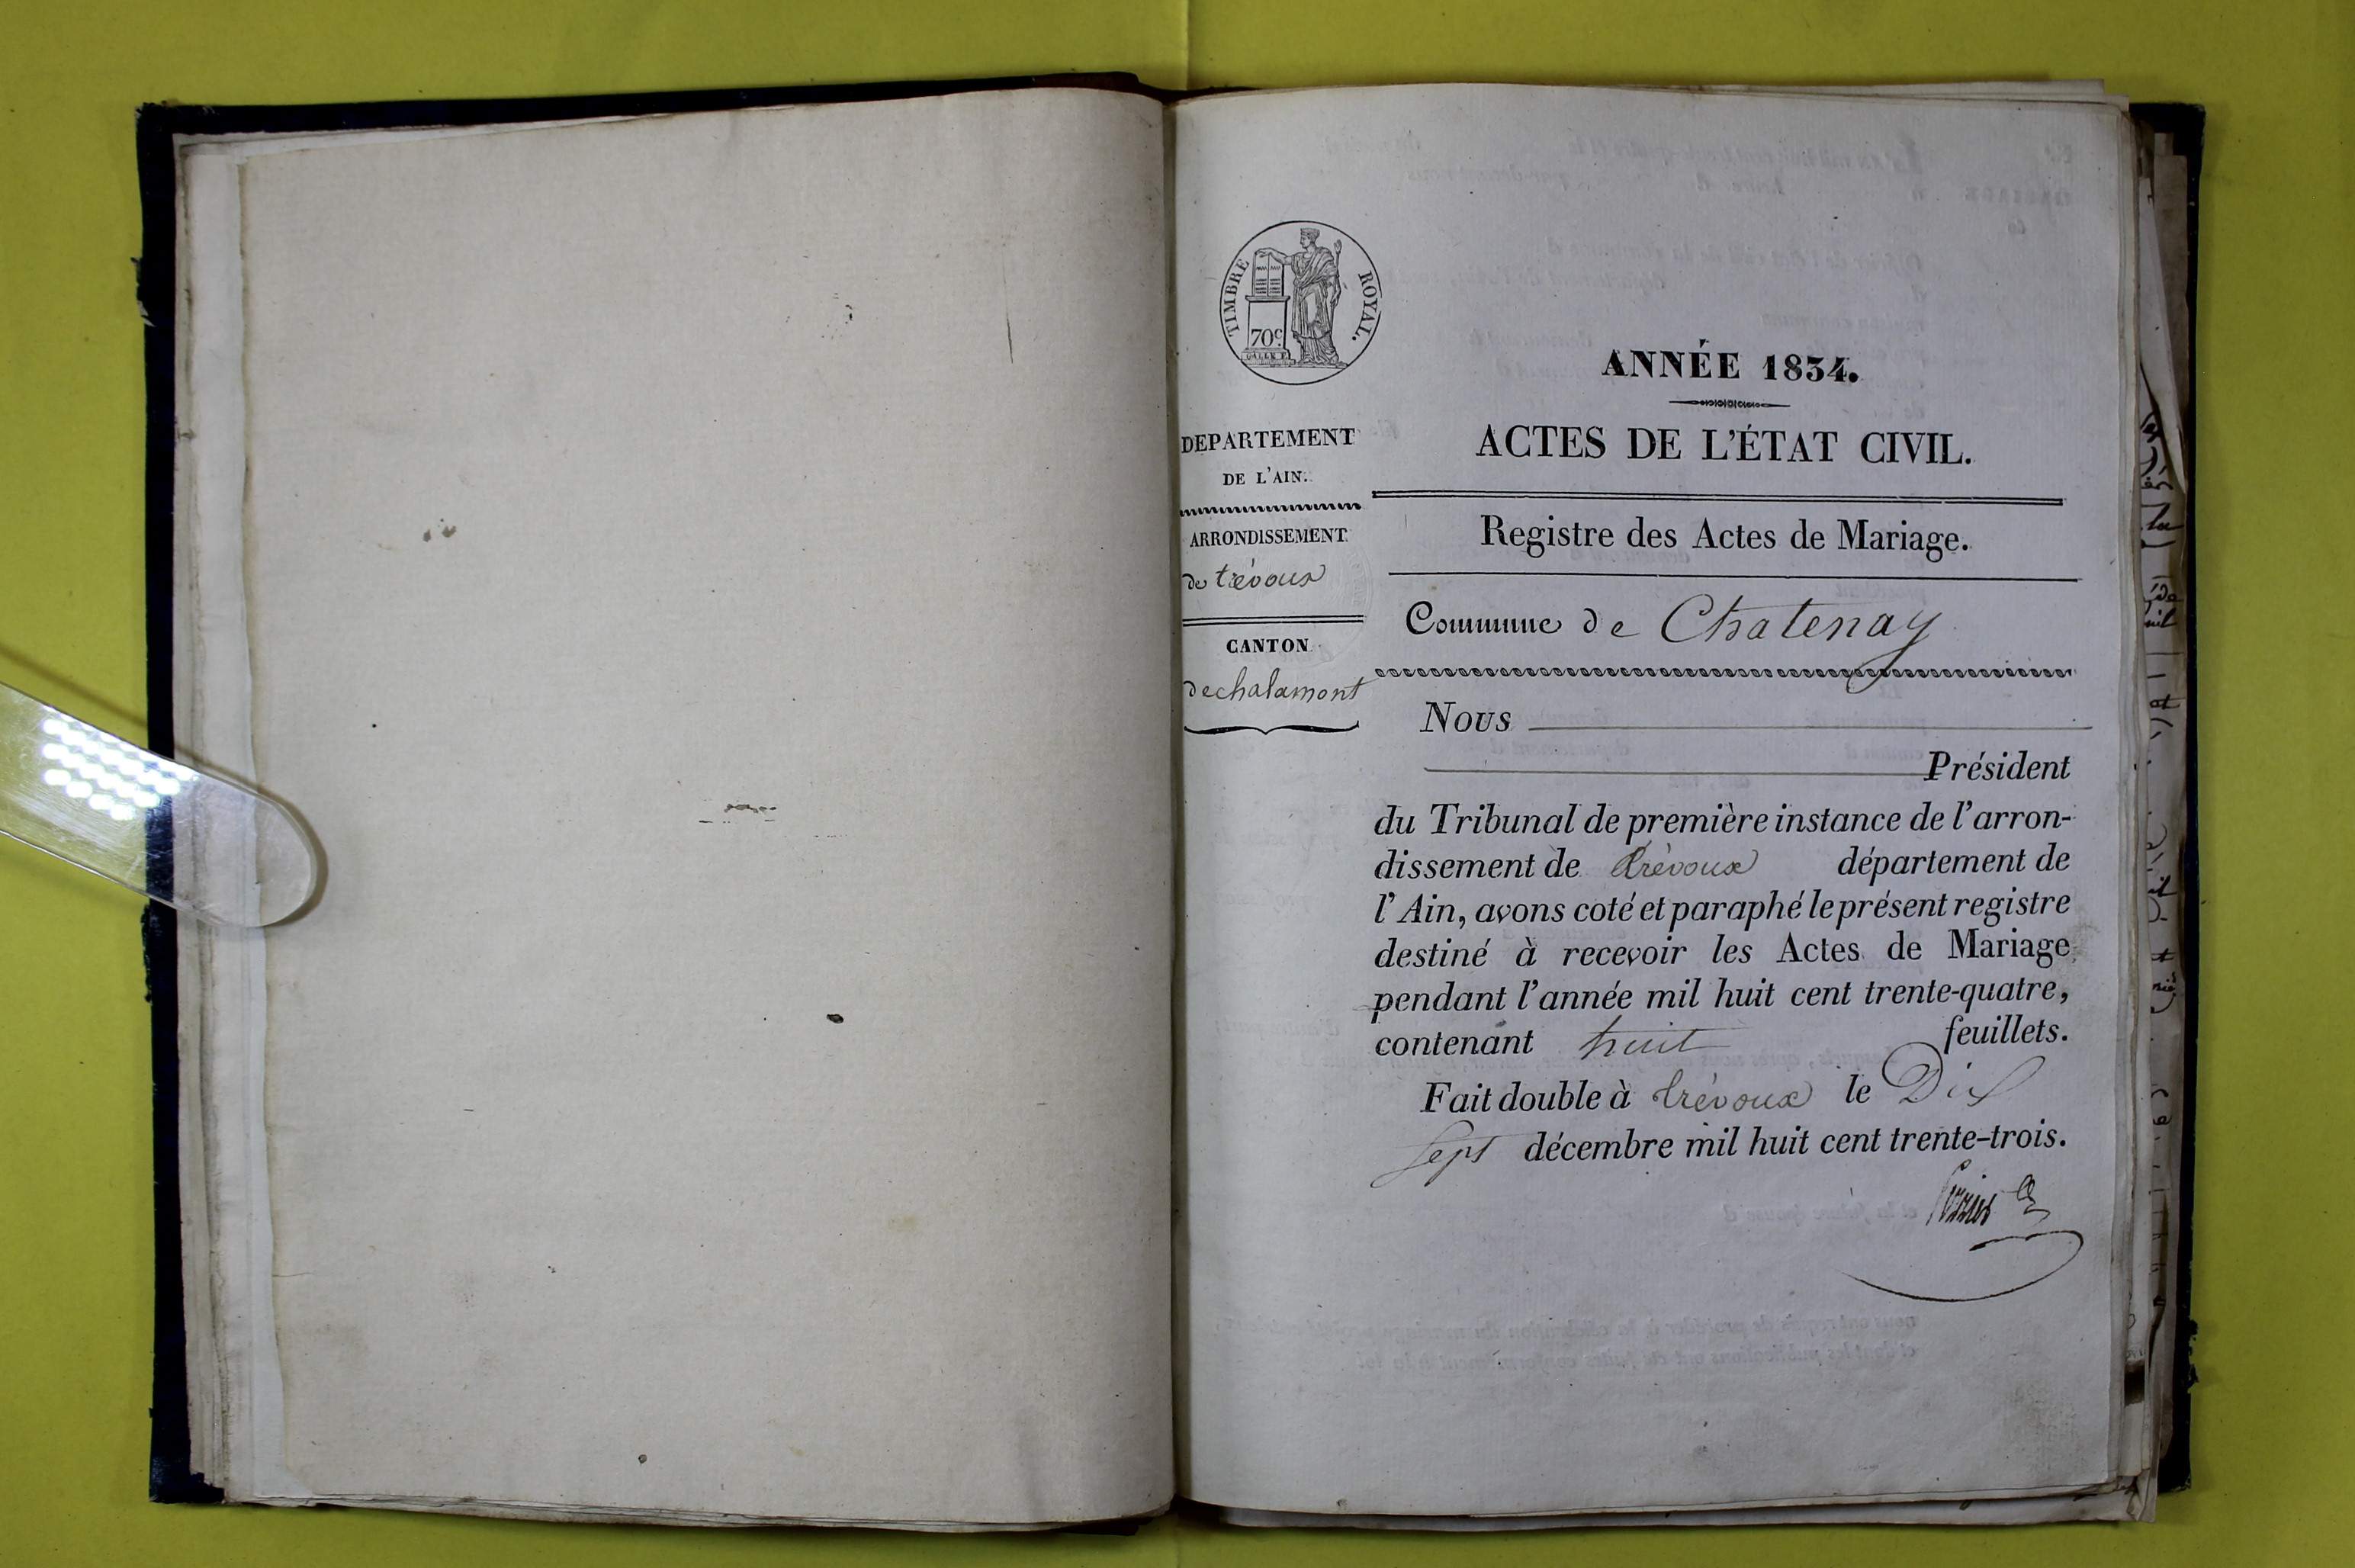 TIMBRE ROYAL.
70c
ANNÉE 1834.
ACTES DE L'ÉTAT CIVIL.
DEPARTEMENT
DE L'AIN.
ARRONDISSEMENT
de trévoux
CANTON
de chalamont
Registre des Actes de Mariage.
Commune de Chatenay
Nous
Président
du Tribunal de première instance de l'arron-
dissement de trévoux département de
l'Ain, avons coté et paraphé le présent registre
destiné à recevoir les Actes de Mariage
pendant l'année mil huit cent trente-quatre,
contenant huit feuillets.
Fait double à trévoux le Dix
Sept décembre mil huit cent trente-trois.